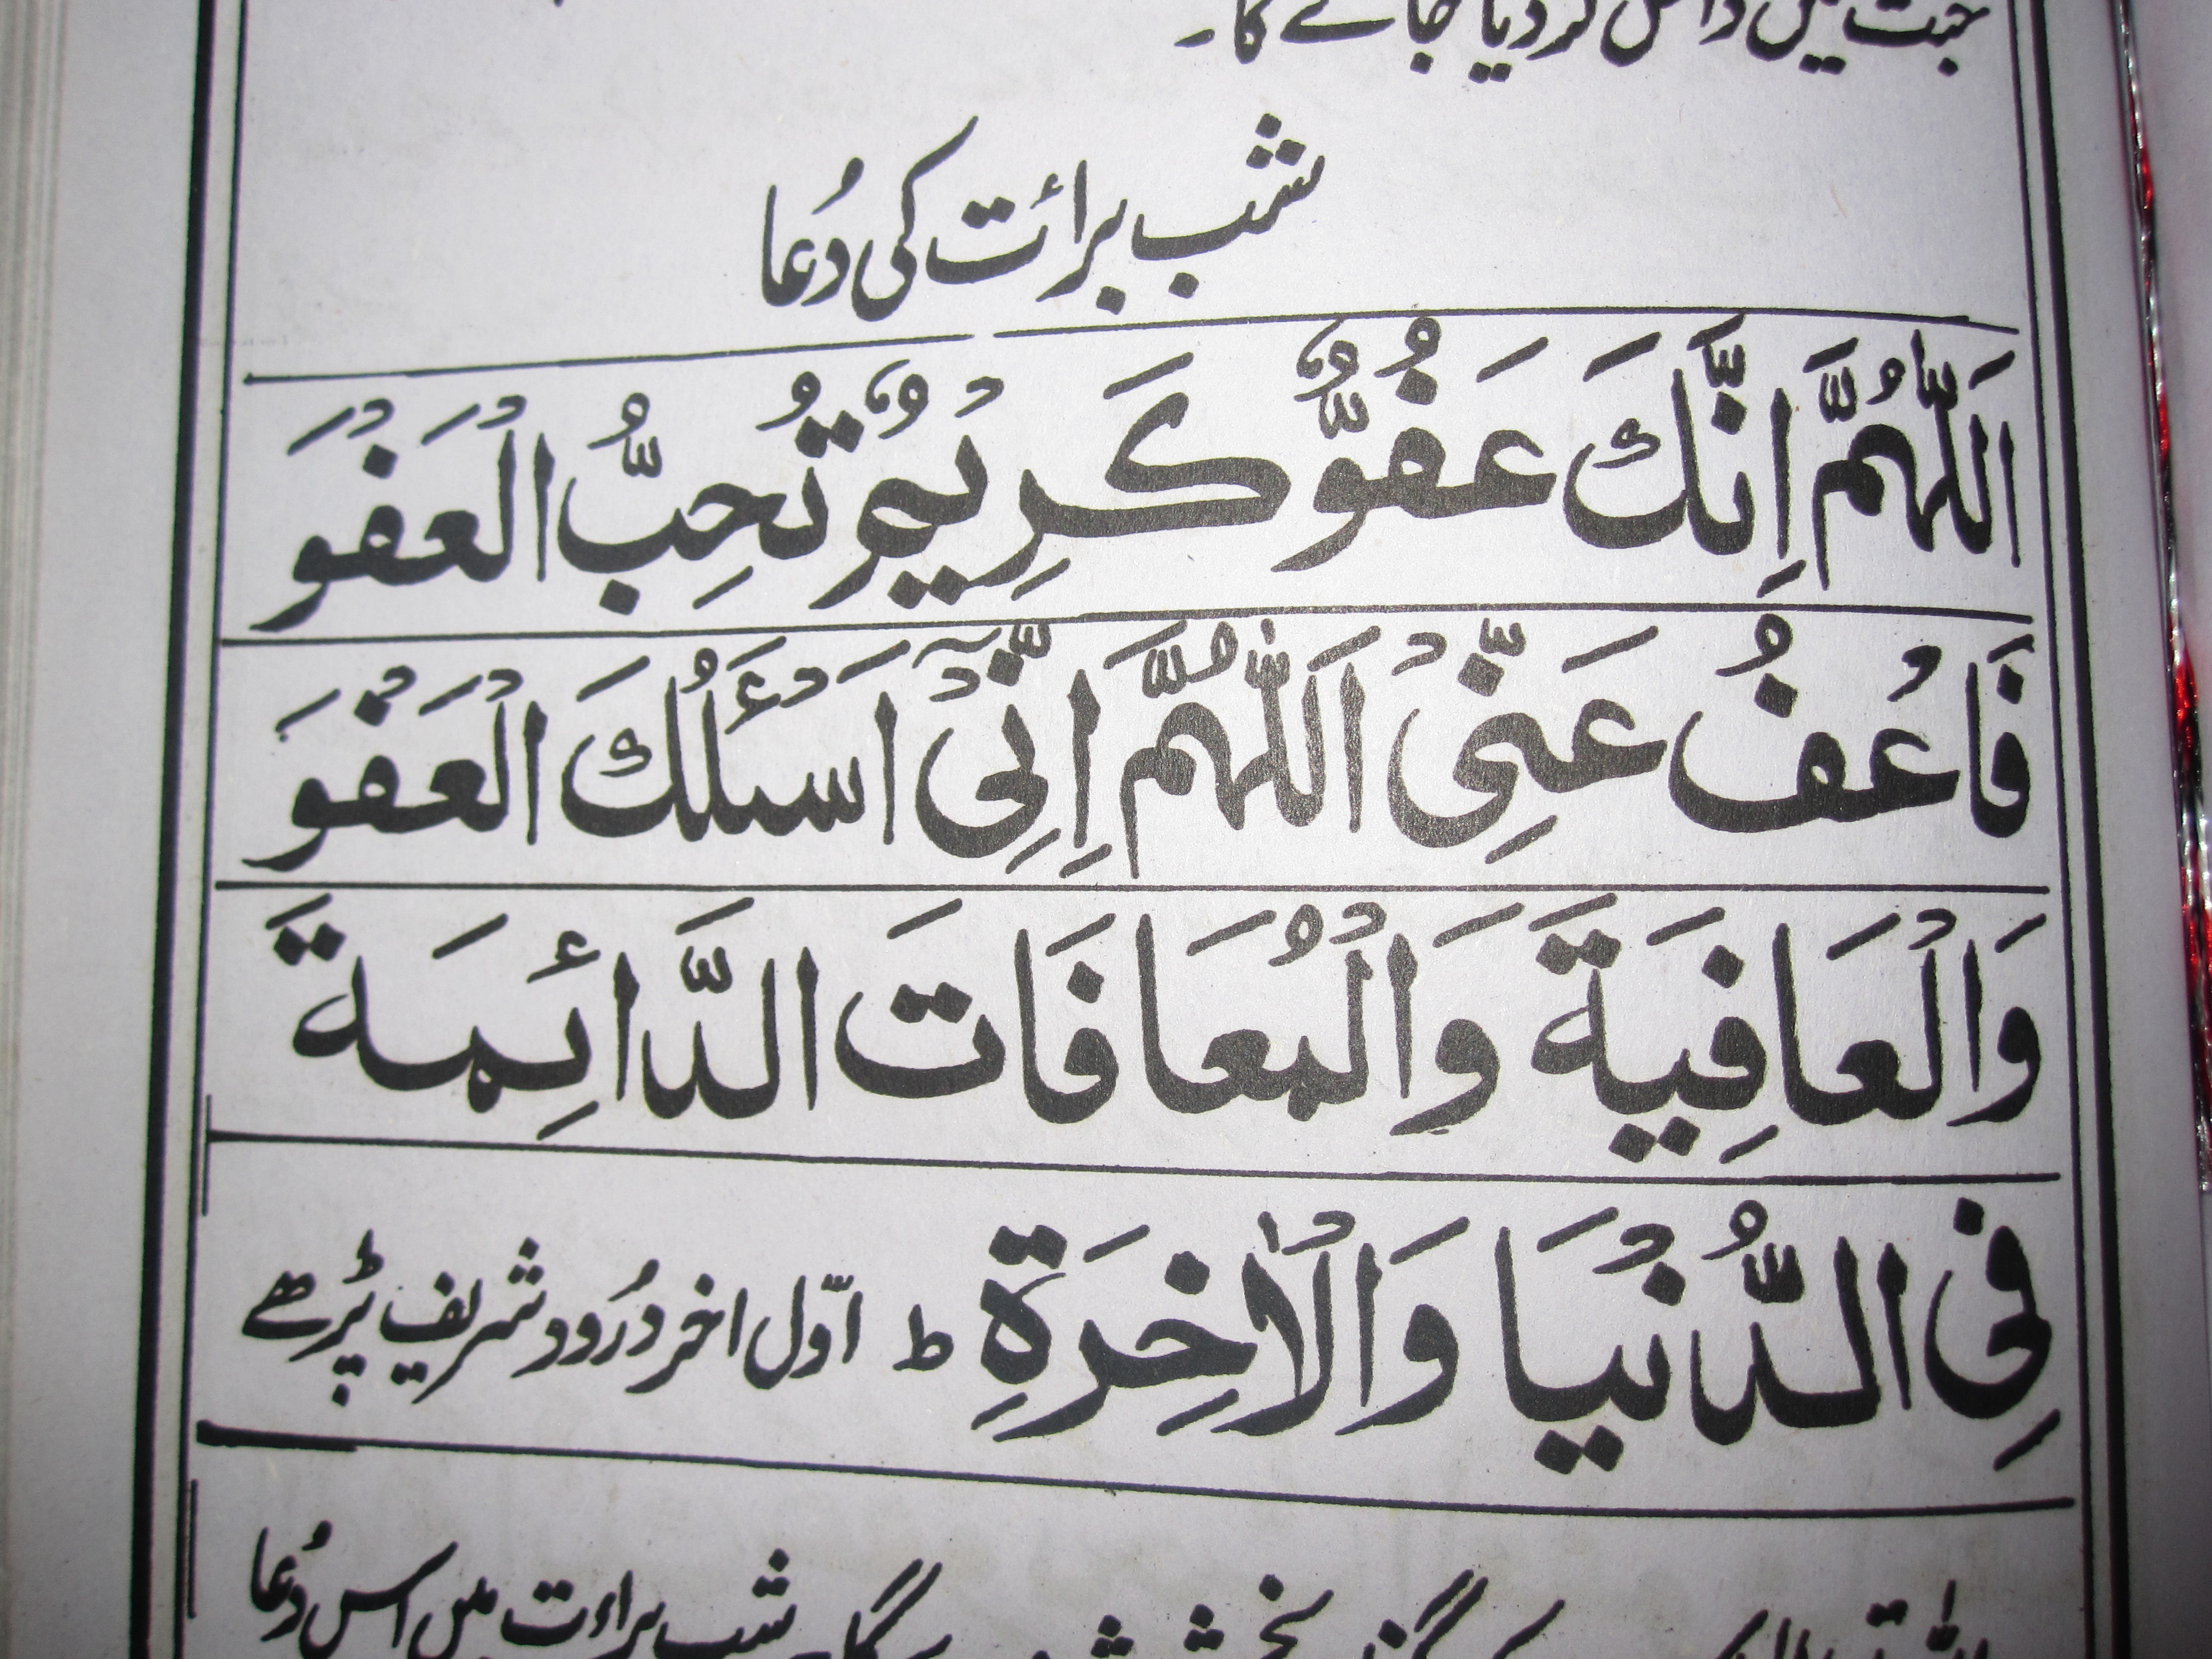 جنت میں داخل کر دیا جائے گا۔
شب برائت کی دُعا
اَللّٰهُمَّ اِنَّكَ عَفُوٌّ كَرِيْمٌ تُحِبُّ الْعَفْوَ
فَاعْفُ عَنِّيْ اَللّٰهُمَّ اِنِّيْٓ اَسْئَلُكَ الْعَفْوَ
وَالْعَافِيَةَ وَالْمُعَافَاتَ الدَّائِمَةَ
فِي الدُّنْيَا وَالْاٰخِرَةِ ط اوّل اخر دُرُود شریف پڑھے
شب براءت میں اس دُعا